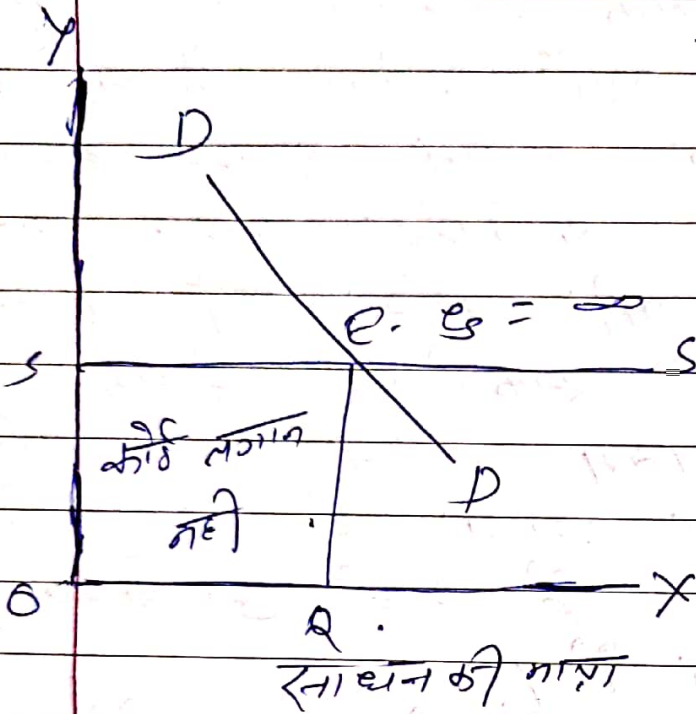 Y
D
e. es = ∞
S S
कोई लगान
नही
D
O X
Q.
साधन की मात्रा